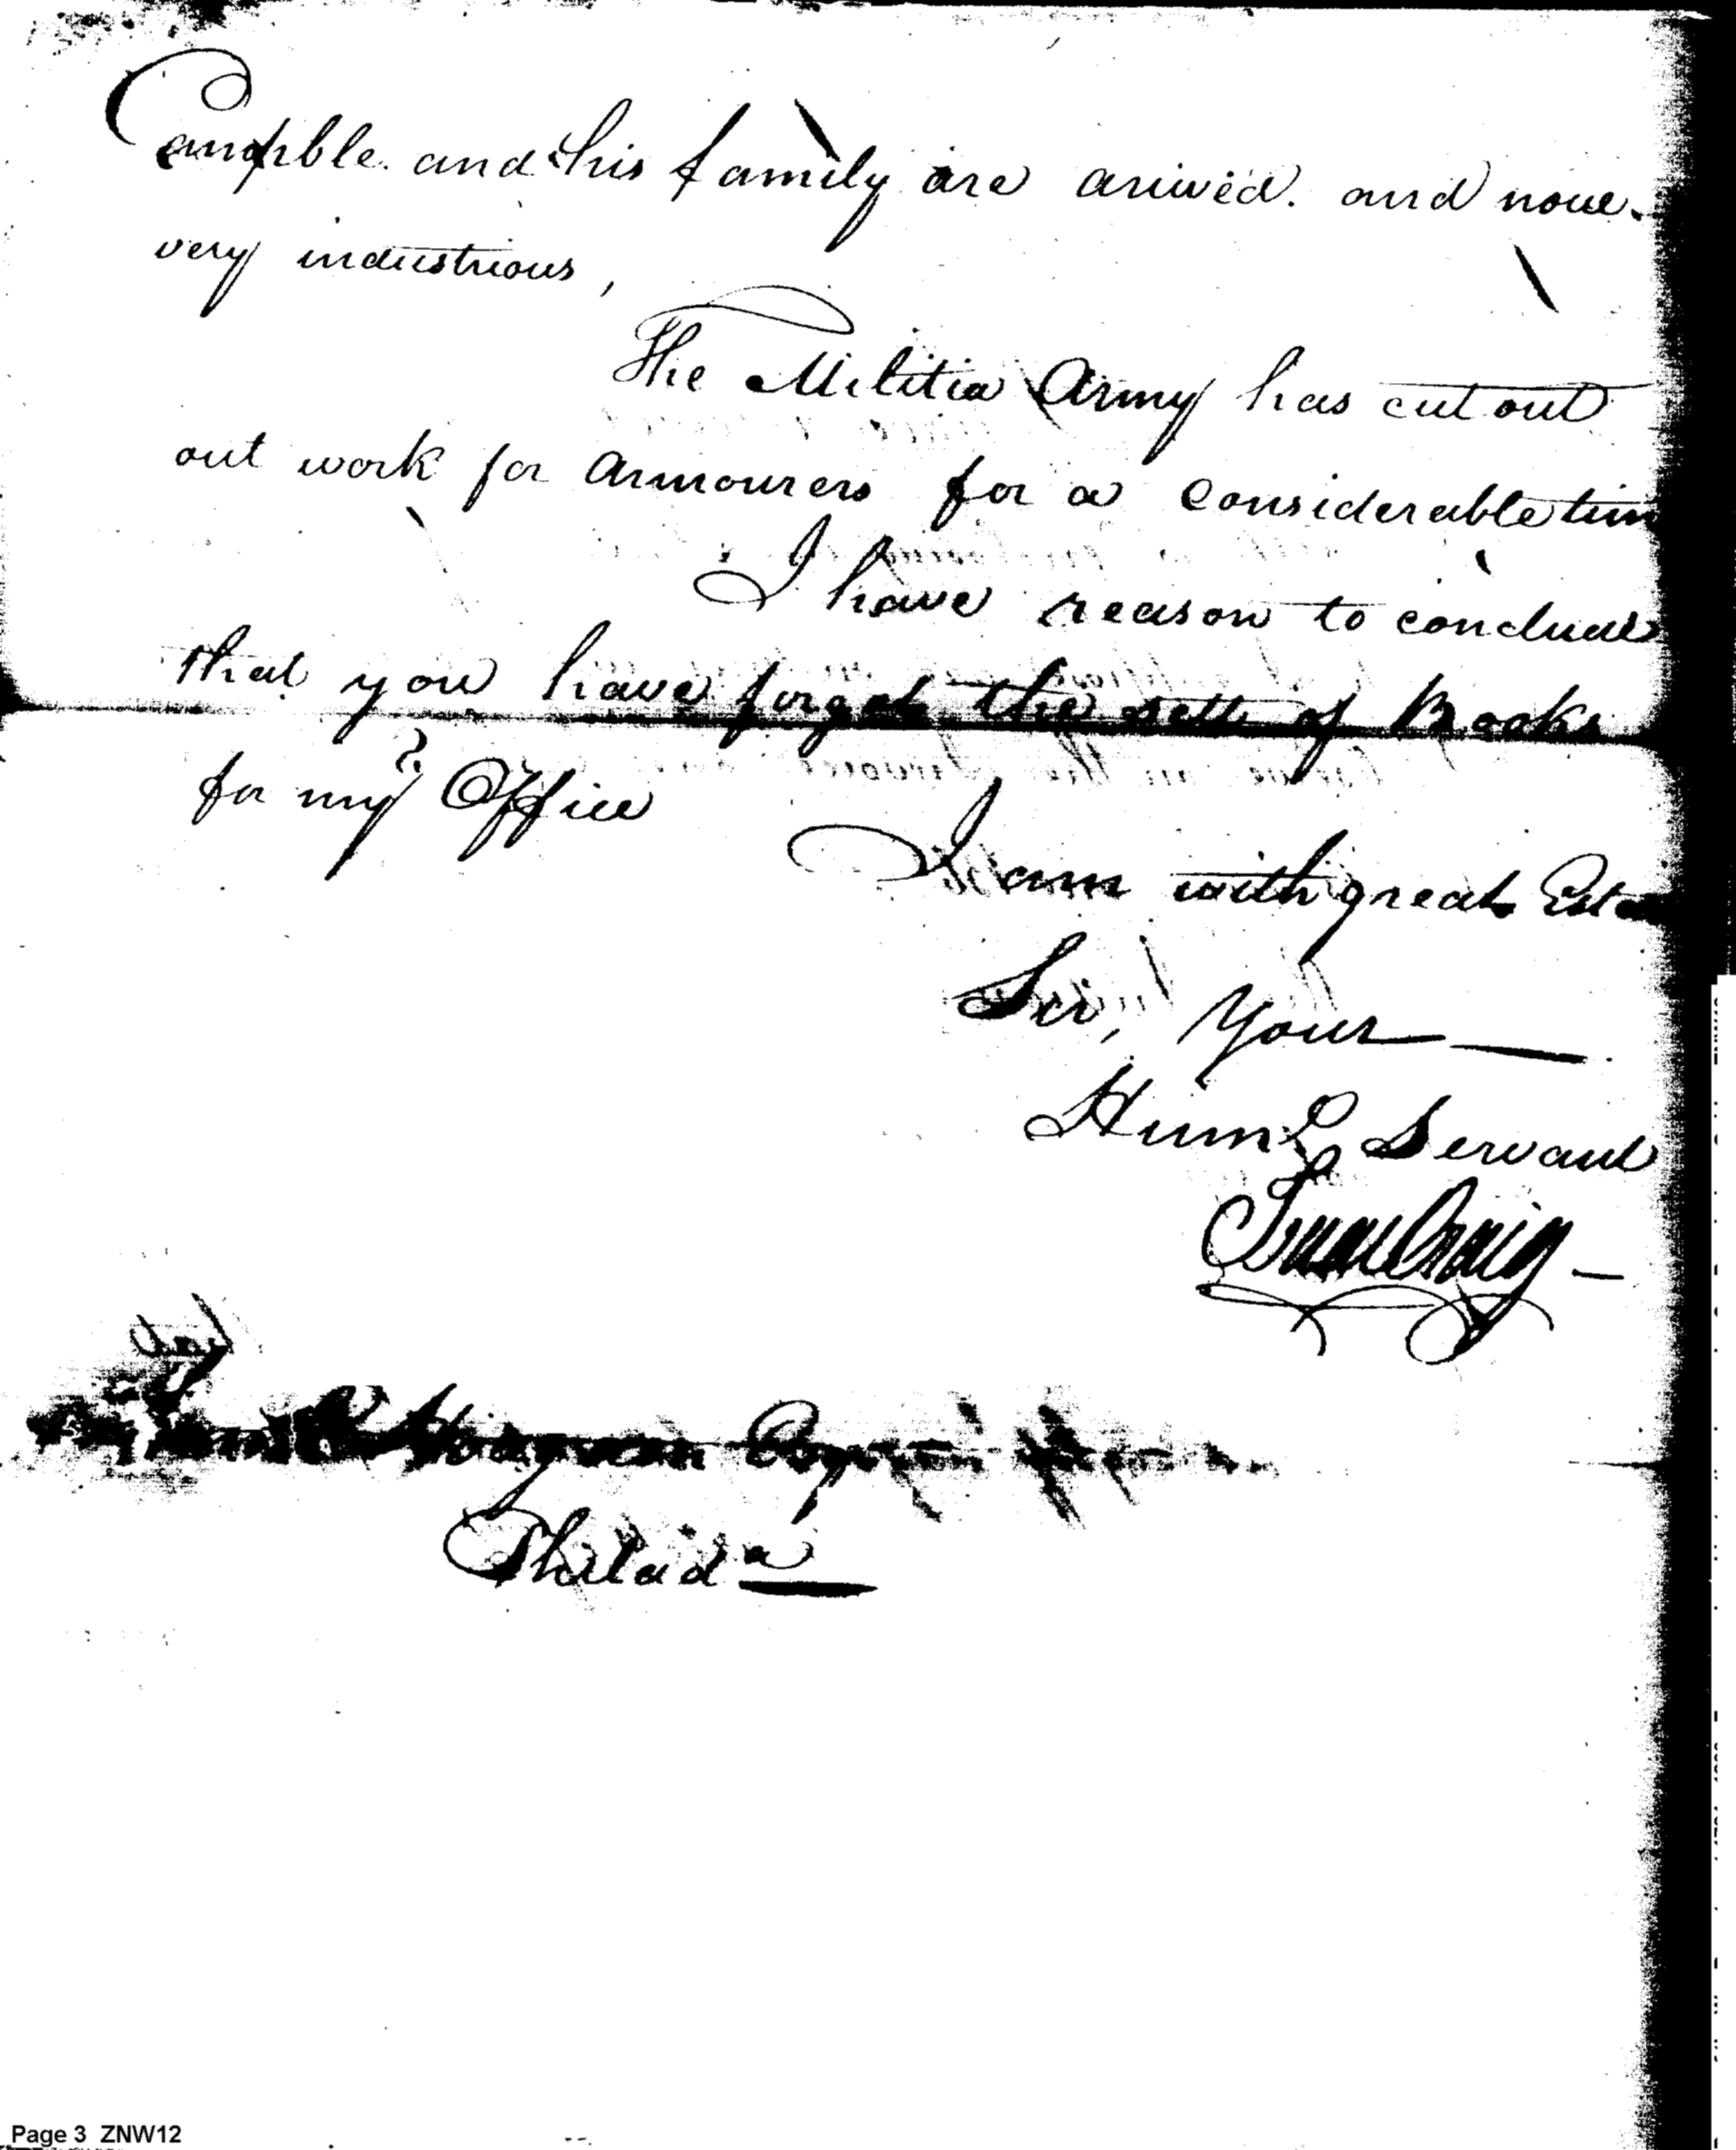 Campble. and his family are arrived. and now
very industrious,
The Militia Army has cut out
out work for Armourers for a Considerable tim
I have reason to conclude
that you have forgot the setts of Books
for my Office
I am with great Este
Sir, Your
Huml Servant
Isaac Craig
Hodgdon
Philada
Page 3 ZNW12